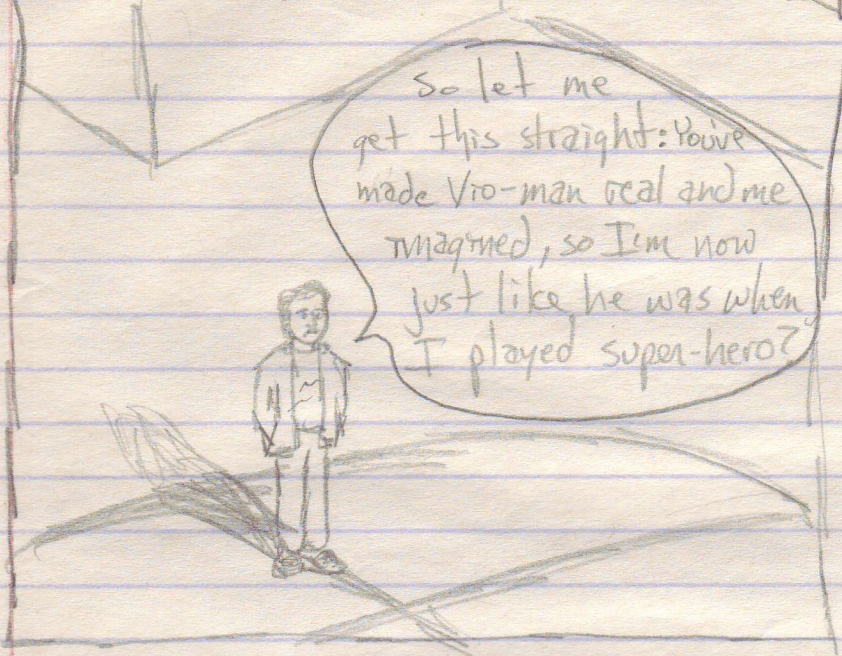 So let me
get this straight: You've
made Vio-man real and me
imagined, so I'm now
just like he was when
I played super-hero?